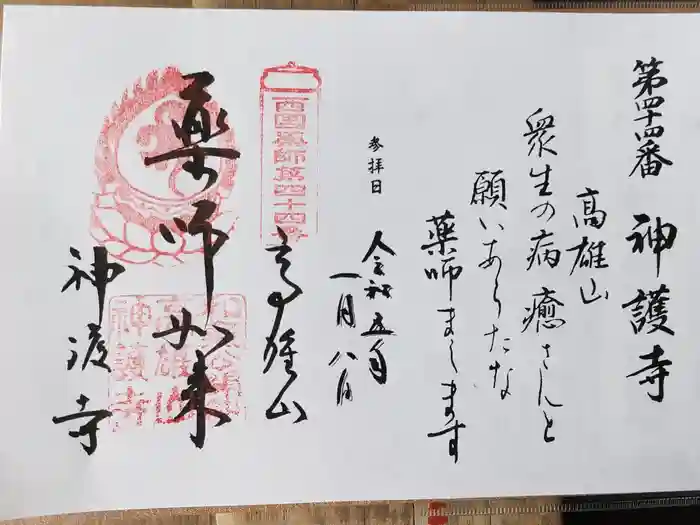 第四十四番 神護寺
高雄山
衆生の病癒さんと
願いあらたな
薬師まします
参拝日
令和五年
一月八日
西国薬師第四十四番
高雄山
薬師如来
神護寺
高雄山
神護寺